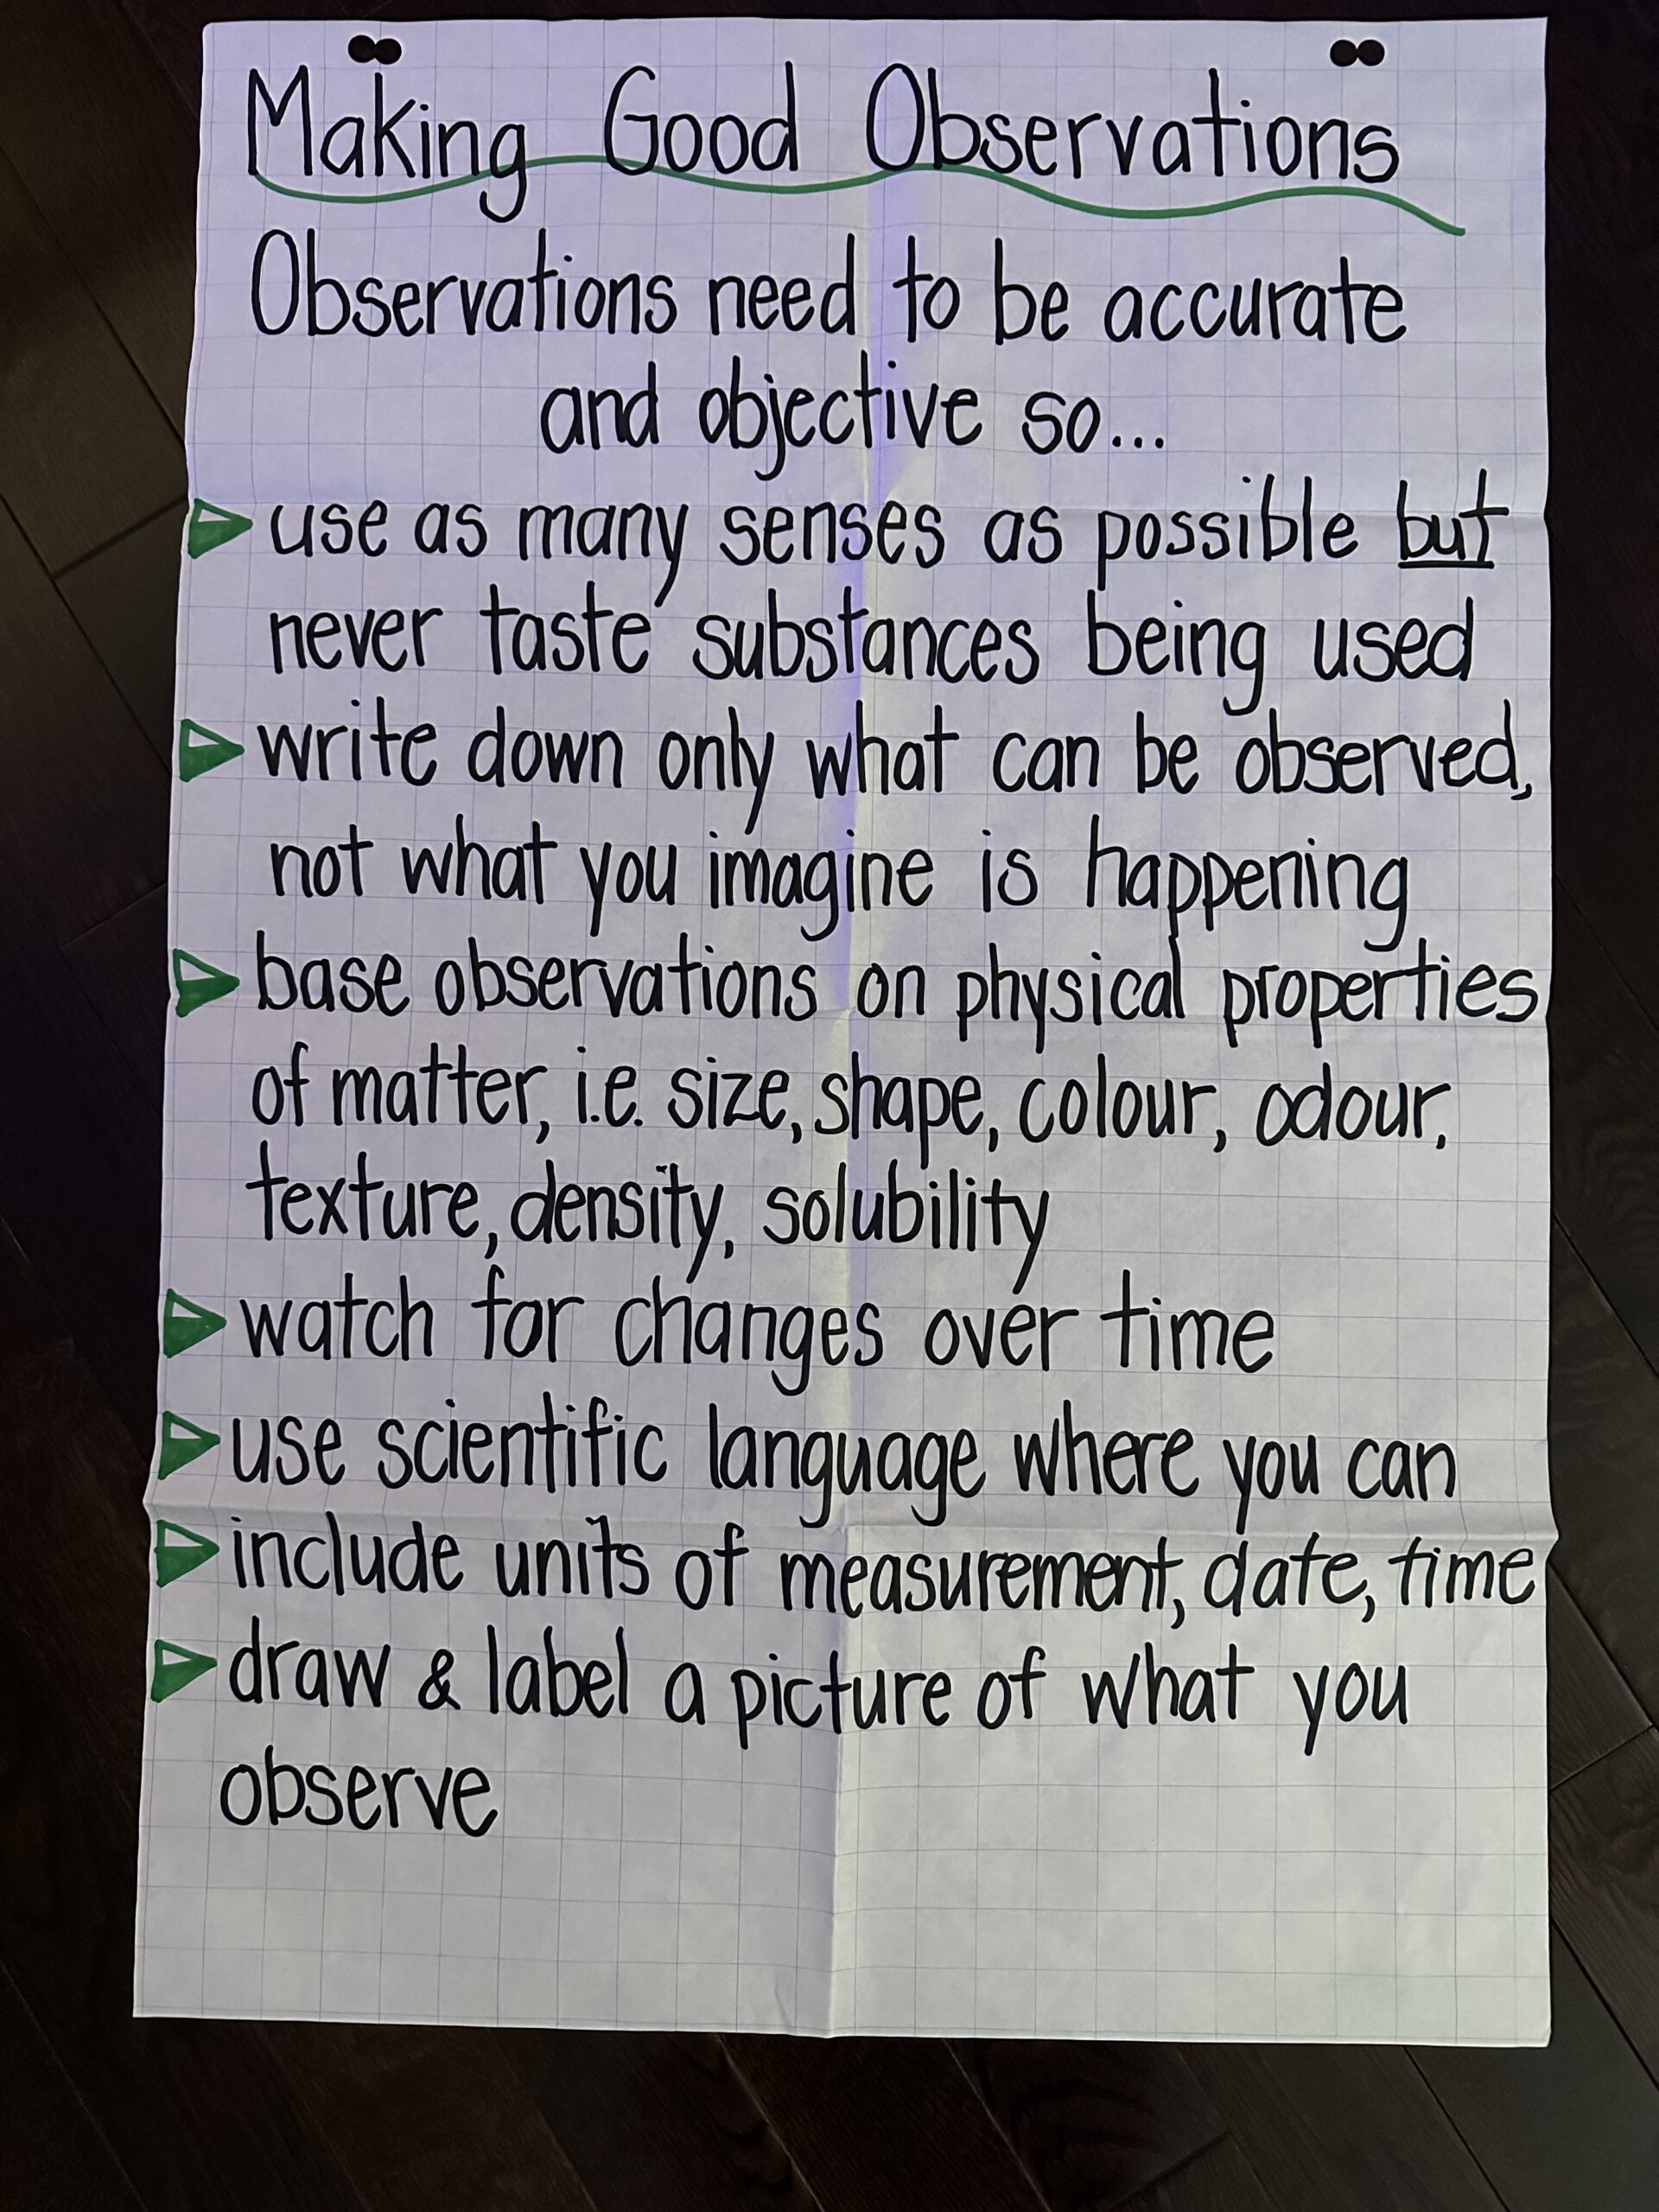 Making Good Observations
Observations need to be accurate
and objective so...
use as many senses as possible but
never taste substances being used
write down only what can be observed,
not what you imagine is happening
base observations on physical properties
of matter, i.e. size, shape, colour, odour,
texture, density, solubility
watch for changes over time
use scientific language where you can
include units of measurement, date, time
draw & label a picture of what you
observe